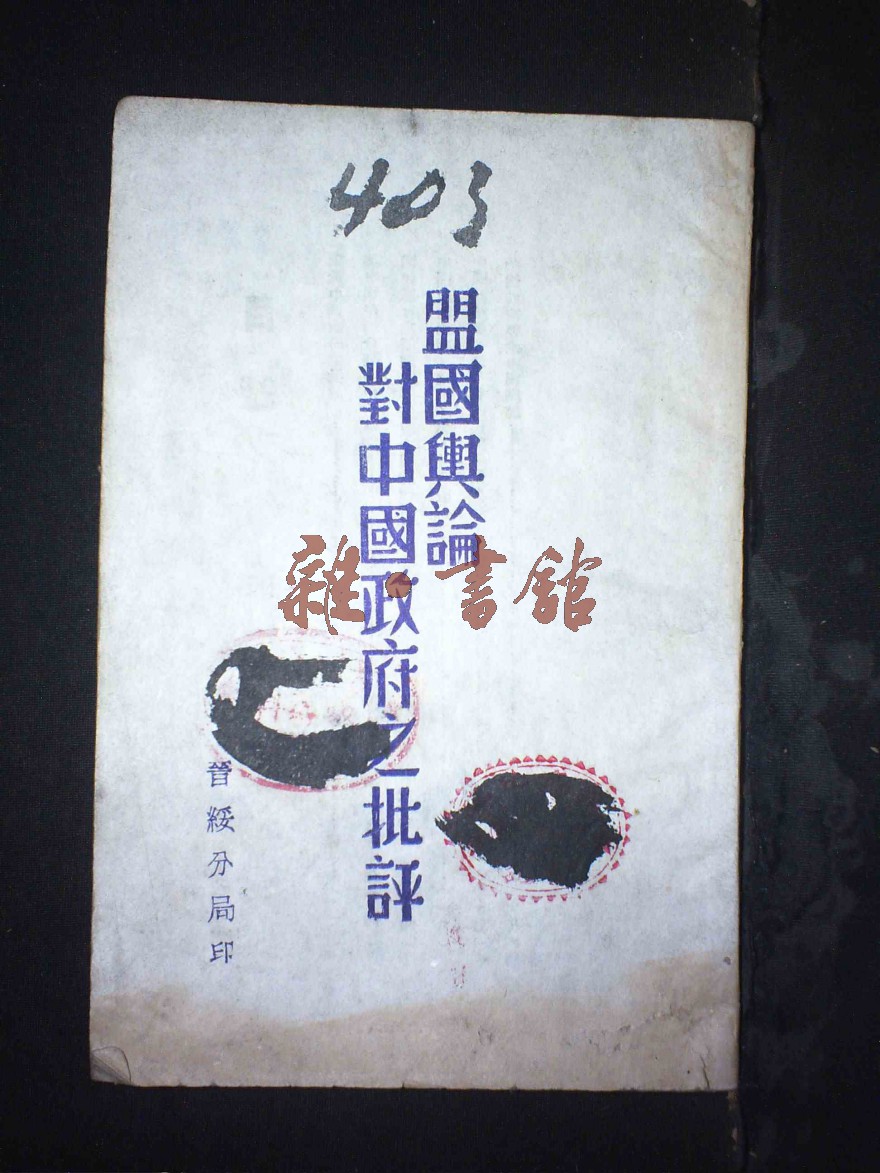 403
盟國輿論
對中國政府之批評
晉綏分局印
雜·書館